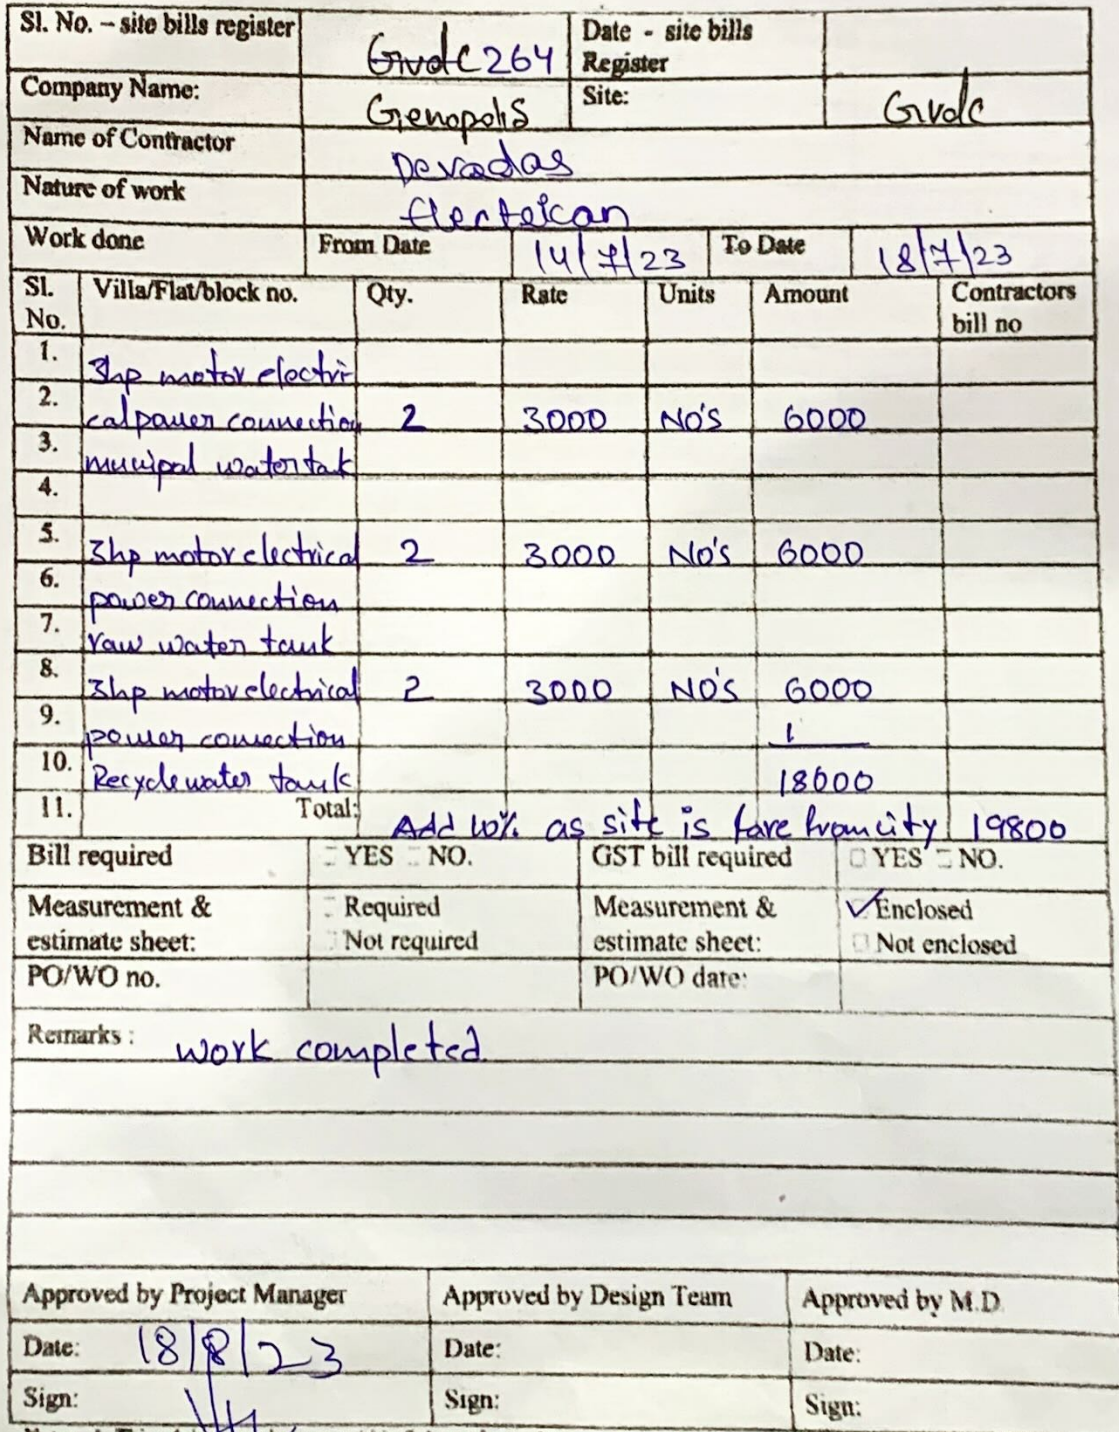 Sl. No. – site bills register Gvdc 264 Date - site bills Register
Company Name: Genopolis Site: Gvdc
Name of Contractor Devadas
Nature of work Electeican
Work done From Date 14/7/23 To Date 18/7/23
Sl. No. Villa/Flat/block no. Qty. Rate Units Amount Contractors bill no
1. 3hp motor electri
2. cal pauer connection 2 3000 NO'S 6000
3. municipal water tak
4.
5. 3hp motor electrical 2 3000 NO'S 6000
6. power connection
7. raw water tank
8. 3hp motor electrical 2 3000 NO'S 6000
9. power connection
10. Recycle water tank 18000
11. Total: Add 10% as site is fare from city 19800
Bill required YES NO. GST bill required YES NO.
Measurement & estimate sheet: Required Not required Measurement & estimate sheet: ✓Enclosed Not enclosed
PO/WO no. PO/WO date:
Remarks : work completed.
Approved by Project Manager Approved by Design Team Approved by M.D
Date: 18/8/23 Date: Date:
Sign: Sign: Sign: